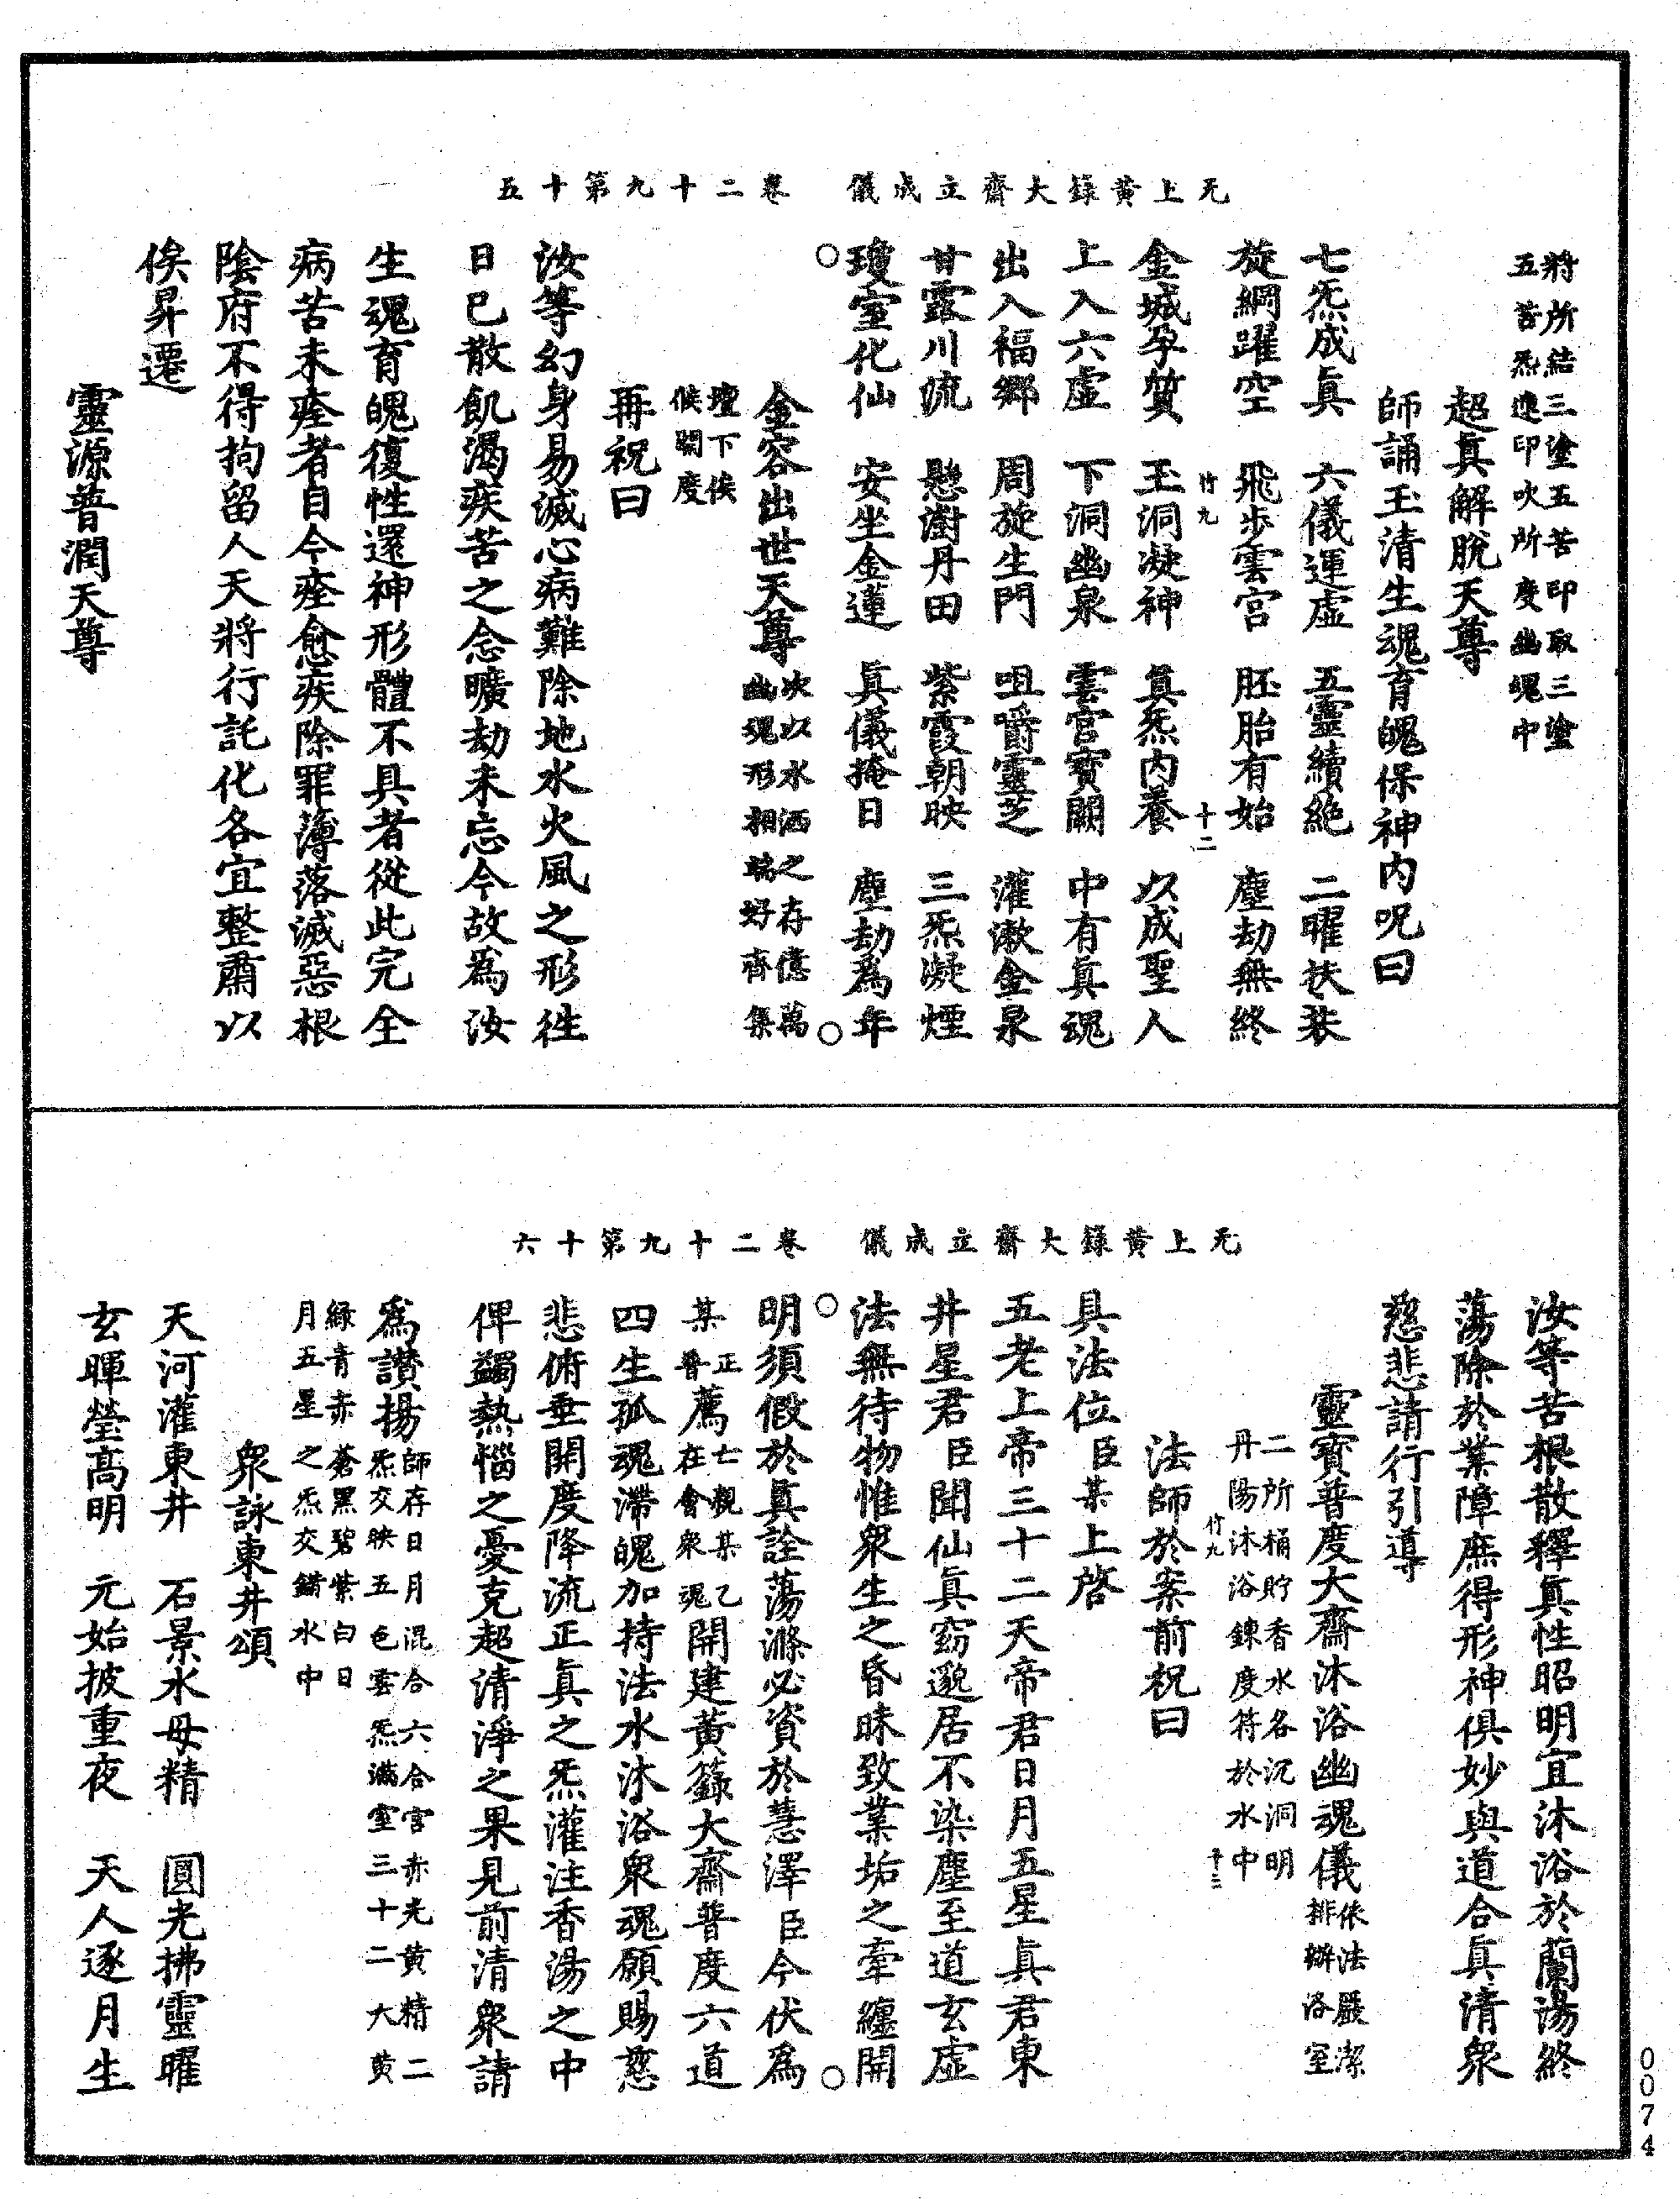 无上黃錄大齋立成儀　卷二十九第十五
將所結三塗五苦印取三塗
五苦炁速印吹所度幽魂中
超眞解脫天尊
師誦玉清生魂育魄保神內呪曰
七炁成眞　六儀運虛　五靈續絕　二曜扶裝
旋綱躍空　飛步雲宮　胚胎有始　塵劫無終
竹九　十二
金城孕質　玉洞凝神　眞炁內養　以成聖人
上入六虛　下洞幽泉　雲宮寶闕　中有眞魂
出入福鄉　周旋生門　咀嚼靈芝　灌漱金泉
甘露川流　懸澍丹田　紫霞朝映　三炁凝煙
瓊室化仙　安坐金蓮　眞儀掩日　塵劫爲年
金容出世天尊次以水洒之存億萬幽魂形相端好齊集
壇下俟
候開度
再祝曰
汝等幻身易滅心病難除地水火風之形徃
日已散飢渴疾苦之念曠劫未忘今故爲汝
生魂育魄復性還神形體不具者從此完全
病苦未痊者自今痊愈疾除罪薄落滅惡根
陰府不得拘留人天將行託化各宜整肅以
俟昇遷
靈源普潤天尊
无上黃錄大齋立成儀　卷二十九第十六
汝等苦根散釋眞性昭明宜沐浴於蘭湯終
蕩除於業障庶得形神俱妙與道合眞清衆
慈悲請行引導
靈寶普度大齋沐浴幽魂儀依法嚴潔排辦浴室
二所桶貯香水各沉洞明
丹陽沐浴鍊度符於水中
竹九　十三
法師於案前祝曰
具法位臣某上啓
五老上帝三十二天帝君日月五星眞君東
井星君臣聞仙眞窈邈居不染塵至道玄虛
法無待物惟衆生之昏昧致業垢之牽纏開
明須假於眞詮蕩滌必資於慧澤臣今伏爲
某正普薦亡親某乙在會衆魂開建黃籙大齋普度六道
四生孤魂滯魄加持法水沐浴衆魂願賜慈
悲俯垂開度降流正眞之炁灌注香湯之中
俾蠲熱惱之憂克超清淨之果見前清衆請
爲讃揚師存日月混合六合宮赤光黃精二炁交映五色雲炁滿室三十二大黃
綠青赤蒼黑碧紫白日
月五星之炁交錯水中
衆詠東井頌
天河灌東井　石景水母精　圓光拂靈曜
玄暉瑩高明　元始披重夜　天人逐月生
0074